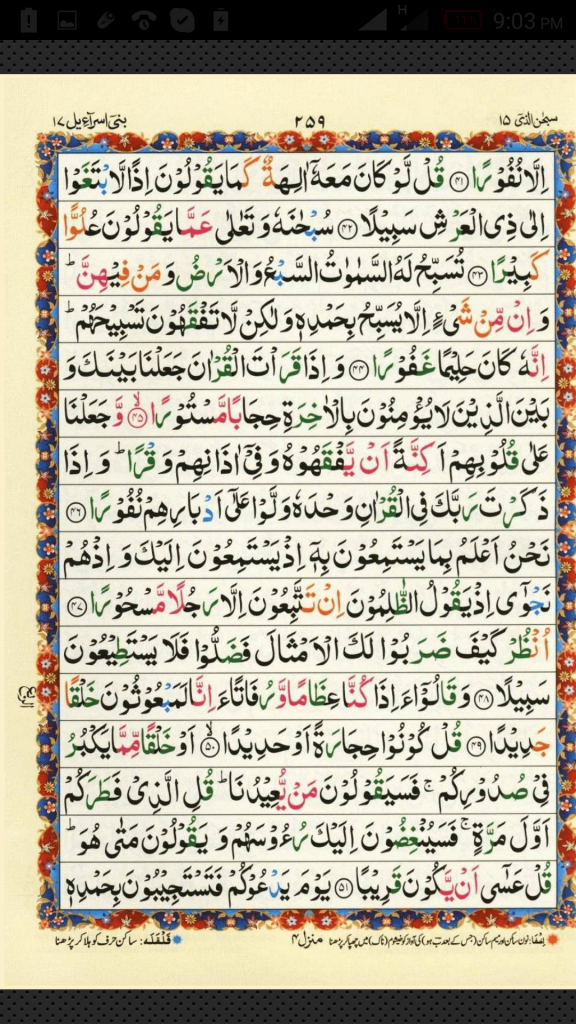 H 11% 9:03 PM
سبحٰن الذی ۱۵ ۲۵۹ بنی اسرآءیل ۱۷
اِلَّا نُفُوۡرًا ﴿۴۱﴾ قُلۡ لَّوۡ كَانَ مَعَهٗۤ اٰلِهَةٌ كَمَا يَقُوۡلُوۡنَ اِذًا لَّابۡتَغَوۡا
اِلٰى ذِى الۡعَرۡشِ سَبِيۡلًا ﴿۴۲﴾ سُبۡحٰنَهٗ وَ تَعٰلٰى عَمَّا يَقُوۡلُوۡنَ عُلُوًّا
كَبِيۡرًا ﴿۴۳﴾ تُسَبِّحُ لَهُ السَّمٰوٰتُ السَّبۡعُ وَالۡاَرۡضُ وَ مَنۡ فِيۡهِنَّ ؕ
وَ اِنۡ مِّنۡ شَىۡءٍ اِلَّا يُسَبِّحُ بِحَمۡدِهٖ وَلٰكِنۡ لَّا تَفۡقَهُوۡنَ تَسۡبِيۡحَهُمۡ ؕ
اِنَّهٗ كَانَ حَلِيۡمًا غَفُوۡرًا ﴿۴۴﴾ وَ اِذَا قَرَاۡتَ الۡقُرۡاٰنَ جَعَلۡنَا بَيۡنَكَ وَ
بَيۡنَ الَّذِيۡنَ لَا يُؤۡمِنُوۡنَ بِالۡاٰخِرَةِ حِجَابًا مَّسۡتُوۡرًا ﴿۴۵﴾ۙ وَّ جَعَلۡنَا
عَلٰى قُلُوۡبِهِمۡ اَكِنَّةً اَنۡ يَّفۡقَهُوۡهُ وَفِىۡۤ اٰذَانِهِمۡ وَقۡرًا ؕ وَ اِذَا
ذَكَرۡتَ رَبَّكَ فِى الۡقُرۡاٰنِ وَحۡدَهٗ وَلَّوۡا عَلٰٓى اَدۡبَارِهِمۡ نُفُوۡرًا ﴿۴۶﴾
نَحۡنُ اَعۡلَمُ بِمَا يَسۡتَمِعُوۡنَ بِهٖۤ اِذۡ يَسۡتَمِعُوۡنَ اِلَيۡكَ وَ اِذۡ هُمۡ
نَجۡوٰٓى اِذۡ يَقُوۡلُ الظّٰلِمُوۡنَ اِنۡ تَتَّبِعُوۡنَ اِلَّا رَجُلًا مَّسۡحُوۡرًا ﴿۴۷﴾
اُنۡظُرۡ كَيۡفَ ضَرَبُوۡا لَكَ الۡاَمۡثَالَ فَضَلُّوۡا فَلَا يَسۡتَطِيۡعُوۡنَ
سَبِيۡلًا ﴿۴۸﴾ وَ قَالُوۡۤا ءَاِذَا كُنَّا عِظَامًا وَّ رُفَاتًا ءَاِنَّا لَمَبۡعُوۡثُوۡنَ خَلۡقًا
جَدِيۡدًا ﴿۴۹﴾ قُلۡ كُوۡنُوۡا حِجَارَةً اَوۡ حَدِيۡدًا ﴿۵۰﴾ۙ اَوۡ خَلۡقًا مِّمَّا يَكۡبُرُ
فِىۡ صُدُوۡرِكُمۡ ۚ فَسَيَقُوۡلُوۡنَ مَنۡ يُّعِيۡدُنَا ؕ قُلِ الَّذِىۡ فَطَرَكُمۡ
اَوَّلَ مَرَّةٍ ۚ فَسَيُنۡغِضُوۡنَ اِلَيۡكَ رُءُوۡسَهُمۡ وَ يَقُوۡلُوۡنَ مَتٰى هُوَ ؕ
قُلۡ عَسٰٓى اَنۡ يَّكُوۡنَ قَرِيۡبًا ﴿۵۱﴾ يَوۡمَ يَدۡعُوۡكُمۡ فَتَسۡتَجِيۡبُوۡنَ بِحَمۡدِهٖ
اِخفا: نون ساکن اور میم ساکن (جس کے بعد ب ہو) کی آواز کو خیشوم (ناک) میں چھپا کر پڑھنا منزل ۴ قَلْقَلَه: ساکن حرف کو ہلا کر پڑھنا